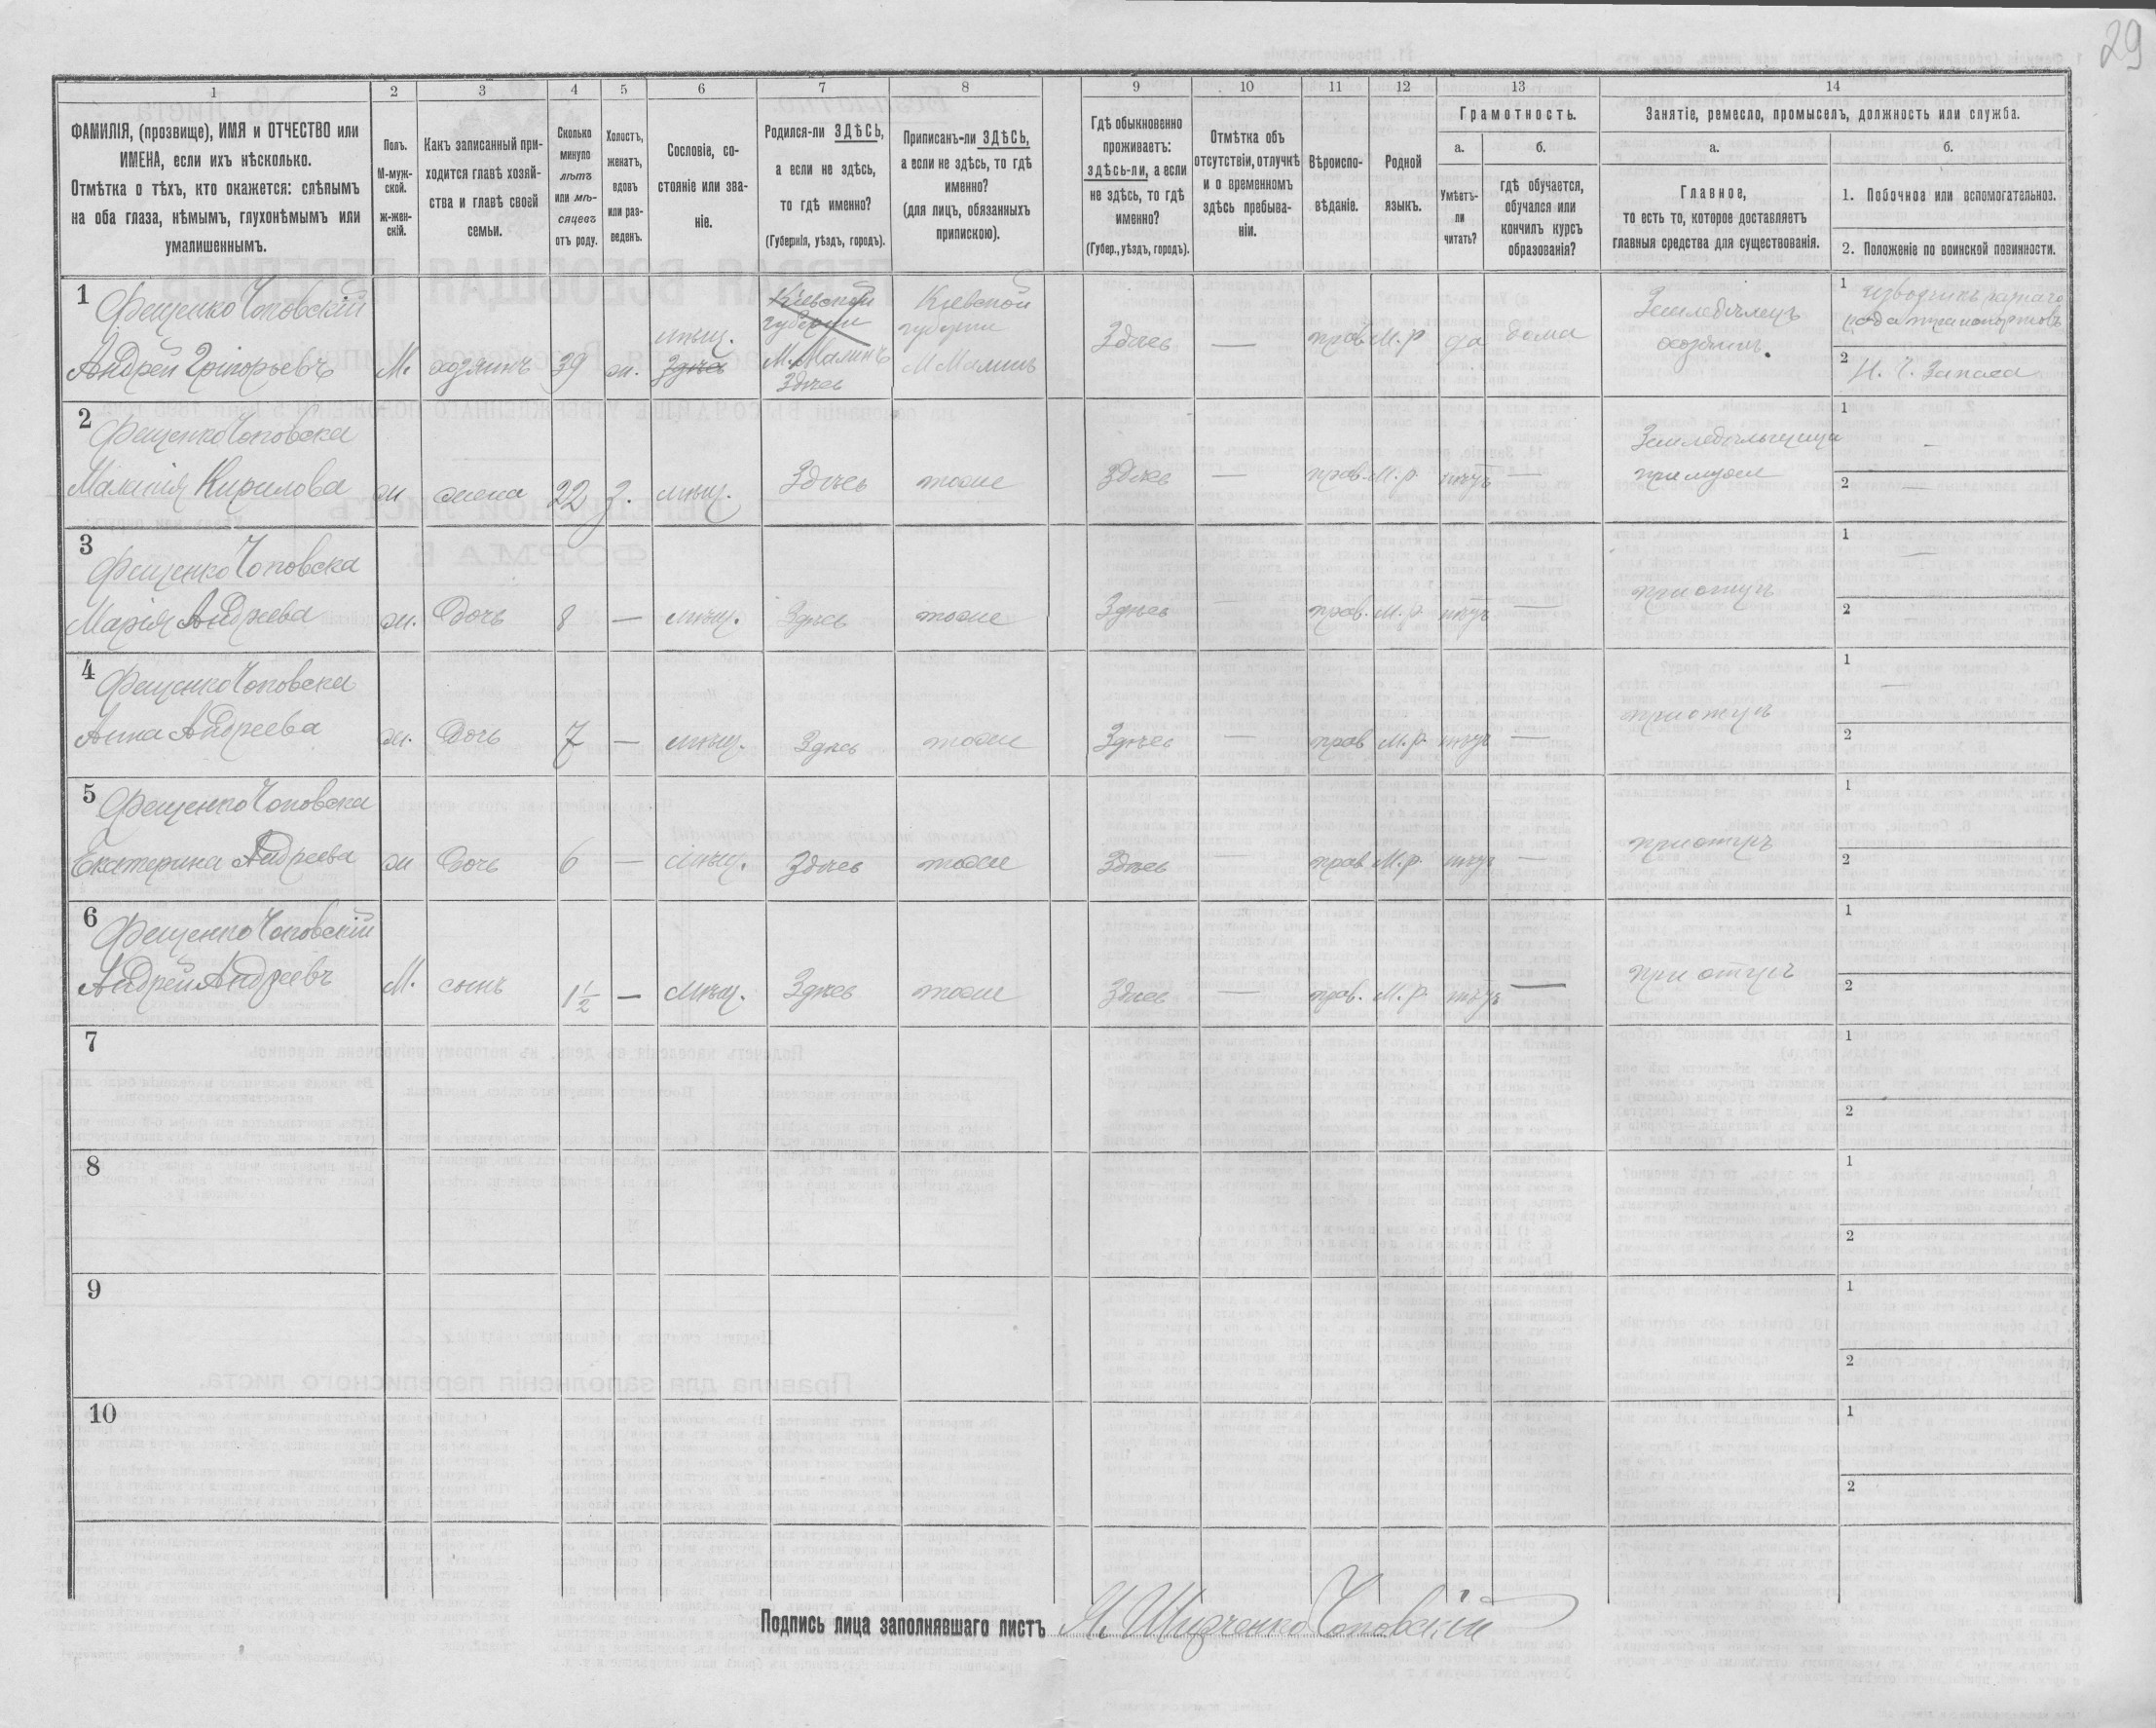 29
1
2
3
4
5
6
7
8
9
10
11
12
13
14
ФАМИЛІЯ, (прозвище), ИМЯ и ОТЧЕСТВО или
ИМЕНА, если ихъ нѣсколько.
Отмѣтка о тѣхъ, кто окажется: слѣпымъ
на оба глаза, нѣмымъ, глухонѣмымъ или
умалишеннымъ.
Полъ.
М-муж-
ской.
ж-жен-
скій.
Какъ записанный при-
ходится главѣ хозяй-
ства и главѣ своей
семьи.
Сколько
минуло
лѣтъ
или мѣ-
сяцевъ
отъ роду.
Холостъ,
женатъ,
вдовъ
или раз-
веденъ.
Сословіе, со-
стояніе или зва-
ніе.
Родился-ли ЗДѢСЬ,
а если не здѣсь,
то гдѣ именно?
(Губернія, уѣздъ, городъ).
Приписанъ-ли ЗДѢСЬ,
а если не здѣсь, то гдѣ
именно?
(для лицъ, обязанныхъ
припискою).
Гдѣ обыкновенно
проживаетъ:
здѣсь-ли, а если
не здѣсь, то гдѣ
именно?
(Губер., уѣздъ, городъ).
Отмѣтка объ
отсутствіи, отлучкѣ
и о временномъ
здѣсь пребыва-
ніи.
Вѣроиспо-
вѣданіе.
Родной
языкъ.
Грамотность.
а.
Умѣетъ-
ли
читать?
б.
гдѣ обучается,
обучался или
кончилъ курсъ
образованія?
Занятіе, ремесло, промыселъ, должность или служба.
а.
Главное,
то есть то, которое доставляетъ
главныя средства для существованія.
б.
1. Побочное или вспомогательное.
2. Положеніе по воинской повинности.
1
Фещенко Чоповскій
Андрей Григорьевъ
М. хозяинъ 39 ж. мѣщ. Здѣсь
Кіевской
губерніи
М. Малинъ
Здѣсь
Кіевской
губерніи
М Малинъ
Здѣсь — прав. М. р да дома
Земледѣлецъ
хозяинъ.
1
2 Н. Ч. Запаса
2
Фещенко Чоповска
Маланія Кирилова
ж жена 22 З. мѣщ. Здѣсь тоже Здѣсь — прав. М. р. —
Земледѣльщица
при мужѣ
1 —
2 —
3
Фещенко Чоповска
Марія Андреева
ж. дочь 8 — мѣщ. Здѣсь тоже Здѣсь — прав. М. р. —
при отцѣ
1 —
2
4
Фещенко Чоповска
Анна Андреева
ж. дочь 7 — мѣщ. Здѣсь тоже Здѣсь — прав М. р. —
при отцѣ
1 —
2
5
Фещенко Чоповска
Екатерина Андреева
ж дочь 6 — мѣщ. Здѣсь тоже Здѣсь — прав М. р. —
при отцѣ
1
2
6
Фещенко Чоповскій
Андрей Андреевъ
М. сынъ 1½ — мѣщ. Здѣсь тоже Здѣсь — прав. М. р. —
при отцѣ
1
2
7
1
2
8
1
2
9
1
2
10
1
2
Подпись лица заполнявшаго листъ Чоповскій